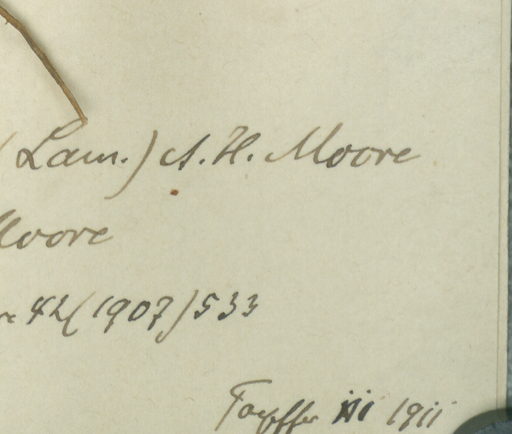 (Lam.) A. H. Moore
Moore
42 (1907) 533
Toepffer iii 1911